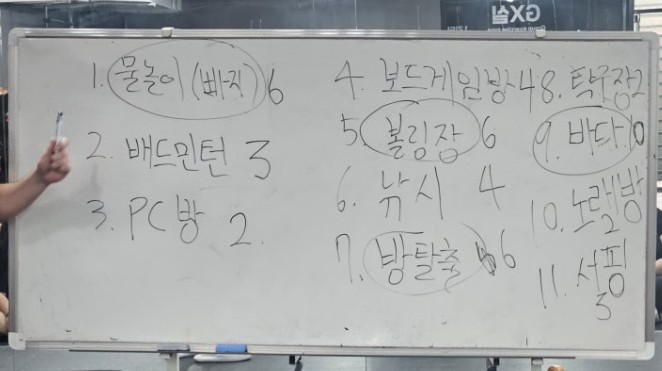 GX실
1. 물놀이(빠지) 6
2. 배드민턴 3
3. PC방 2.
4. 보드게임방 4
5. 볼링장 6
6. 낚시 4
7. 방탈출 6
8. 탁구장 2
9. 바다 10
10. 노래방 2
11. 서핑 3